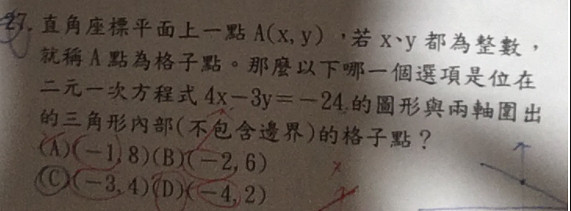 27. 直角座標平面上一點 A(x, y),若 x、y 都為整數,
就稱 A 點為格子點。那麼以下哪一個選項是位在
二元一次方程式 4x-3y=-24 的圖形與兩軸圍出
的三角形內部(不包含邊界)的格子點?
(A)(-1, 8)(B)(-2, 6)
(C)(-3, 4)(D)(-4, 2)